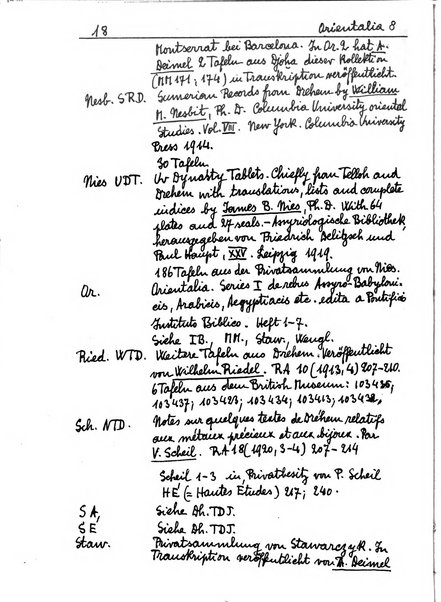 18 Orientalia 8
Montserrat bei Barcelona. In Or. 2 hat A.
Deimel 2 Tafeln aus Djoha dieser Kollektion
(MM 171; 174) in Transkription veröffentlicht.
Nesb. SRD. Sumerian Records from Drehem by William
M. Nesbit, Ph. D. Columbia University oriental
Studies. Vol. VIII. New York. Columbia University
Press 1914.
30 Tafeln.
Nies UDT. Ur Dynasty Tablets. Chiefly from Telloh and
Drehem with translations, lists and complete
indices by James B. Nies, Ph. D. With 64
plates and 27 seals. - Assyriologische Bibliothek,
herausgegeben von Friedrich Delitzsch und
Paul Haupt, XXV. Leipzig 1919.
186 Tafeln aus der Privatsammlung von Nies.
Or. Orientalia. Series I de rebus Assyro-Babyloni-
cis, Arabicis, Aegyptiacis etc. edita a Pontificio
Instituto Biblico. Heft 1-7.
Siehe IB., MM., Staw., Wengl.
Ried. WTD. Weitere Tafeln aus Drehem. Veröffentlicht
von Wilhelm Riedel. RA 10 (1913, 4) 207-210.
6 Tafeln aus dem British Museum: 103435,
103437; 103423; 103434; 103413; 103432,
Sch. NTD. Notes sur quelques textes de Dréhem relatifs
aux métaux précieux et aux bijoux. Par
V. Scheil. RA 18 (1920, 3-4) 207-214
Scheil 1-3 in Privatbesitz von P. Scheil
HE (= Hautes Études) 217; 240.
SA, Siehe Dh. TDJ.
SE Siehe Dh. TDJ.
Staw. Privatsammlung von Stawarczyk. In
Transkription veröffentlicht von A. Deimel